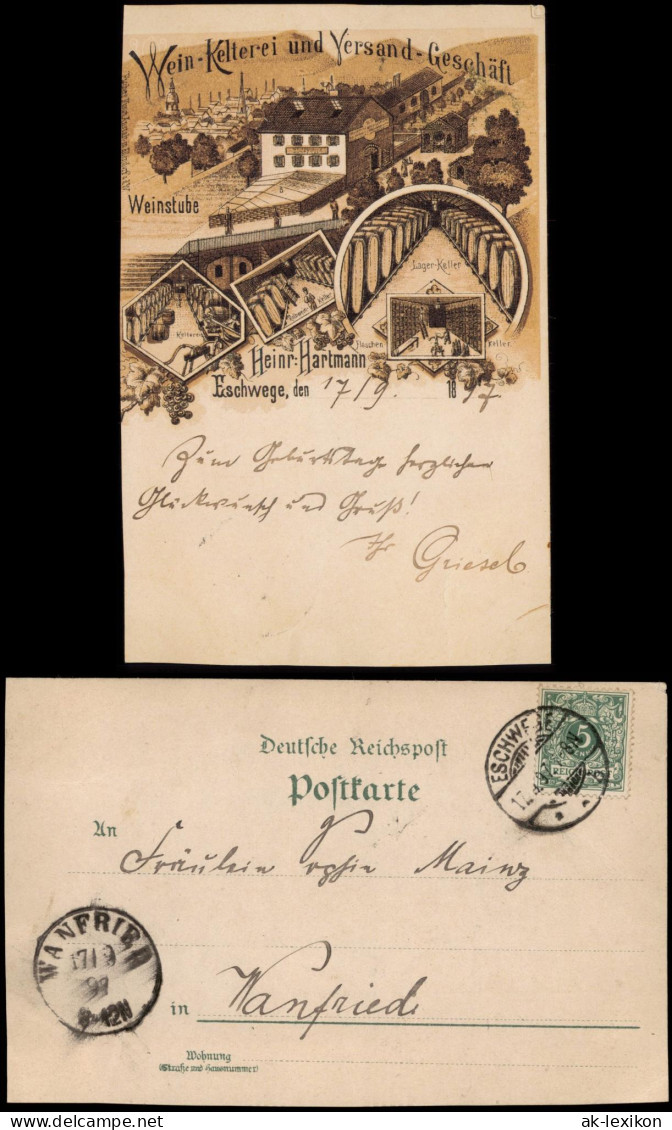 Wein-Kelterei und Versand-Geschäft
Weinstube
Lager-Keller
Kelterei
Flaschen Keller
Heinr. Hartmann
Eschwege, den 17/9. 1897
Zum Geburtstage herzlichen
Glückwunsch und Gruß!
Ihr Griesel
Deutsche Reichspost
Postkarte
ESCHWEGE
5
REICHSPOST
An
Fräulein Sophie Mainz
WANFRIED
17/9
97
8-12N
in Wanfried
Wohnung
(Straße und Hausnummer)
ak-lexikon
www.delcampe.net
ak-lexikon